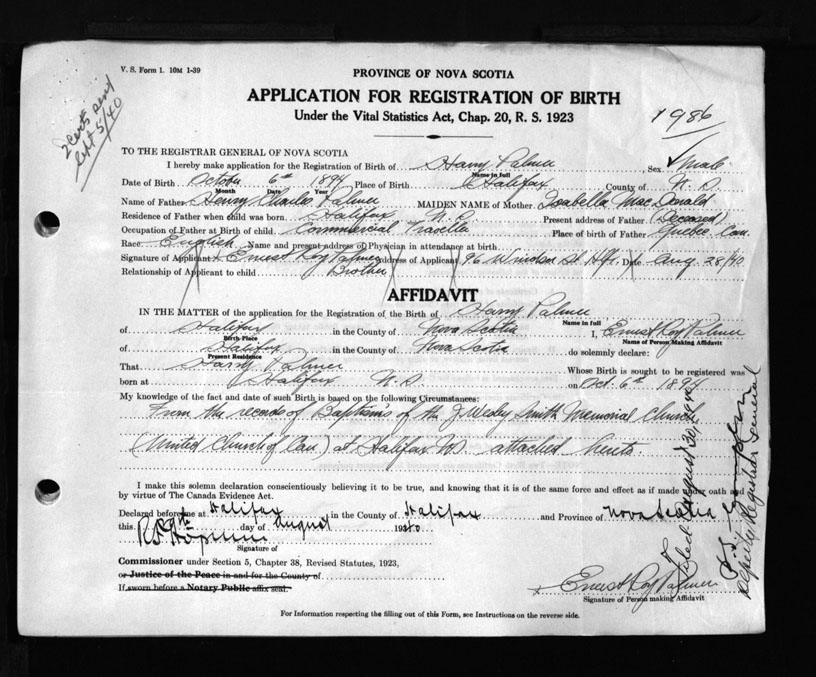 V. S. Form 1. 10M 1-39
2 Certs sent
Sept 5/40
PROVINCE OF NOVA SCOTIA
APPLICATION FOR REGISTRATION OF BIRTH
Under the Vital Statistics Act, Chap. 20, R. S. 1923
1986
TO THE REGISTRAR GENERAL OF NOVA SCOTIA
I hereby make application for the Registration of Birth of Harry Palmer Sex Male
Name in full
Date of Birth October 6th 1894 Place of Birth Halifax County of N. S.
Month Date Year
Name of Father Henry Charles Palmer MAIDEN NAME of Mother Isabella MacDonald
Residence of Father when child was born Halifax N. S. Present address of Father (Deceased)
Occupation of Father at Birth of child Commercial Traveller Place of birth of Father Quebec Can.
Race English Name and present address of Physician in attendance at birth
Signature of Applicant Ernest Roy Palmer Address of Applicant 96 Windsor St Hfx. Date Aug 28/40
Relationship of Applicant to child Brother
AFFIDAVIT
IN THE MATTER of the application for the Registration of the Birth of Harry Palmer
Name in full
of Halifax in the County of Nova Scotia I, Ernest Roy Palmer
Birth-Place Name of Person Making Affidavit
of Halifax in the County of Nova Scotia do solemnly declare:
Present Residence
That Harry Palmer Whose Birth is sought to be registered was
born at Halifax N. S. on Oct. 6th 1894
My knowledge of the fact and date of such Birth is based on the following Circumstances:
From the records of Baptisms of the J Wesley Smith Memorial Church
(United Church of Can) at Halifax NS. attached hereto.
I make this solemn declaration conscientiously believing it to be true, and knowing that it is of the same force and effect as if made under oath and
by virtue of The Canada Evidence Act.
Declared before me at Halifax in the County of Halifax and Province of Nova Scotia
this 29th day of August 1940
Signature of
Commissioner under Section 5, Chapter 38, Revised Statutes, 1923,
or Justice of the Peace in and for the County of
If sworn before a Notary Public affix seal.
Ernest Roy Palmer
Signature of Person making Affidavit
For Information respecting the filling out of this Form, see Instructions on the reverse side.
Filed August 30, 1940
Deputy Registrar General